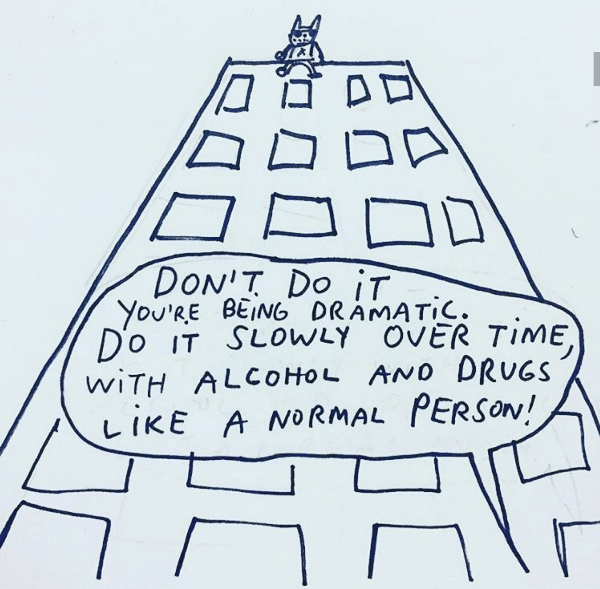 DON'T DO iT
YOU'RE BEING DRAMATIC.
DO IT SLOWLY OVER TiME,
WiTH ALCOHOL AND DRUGS
LiKE A NORMAL PERSON!